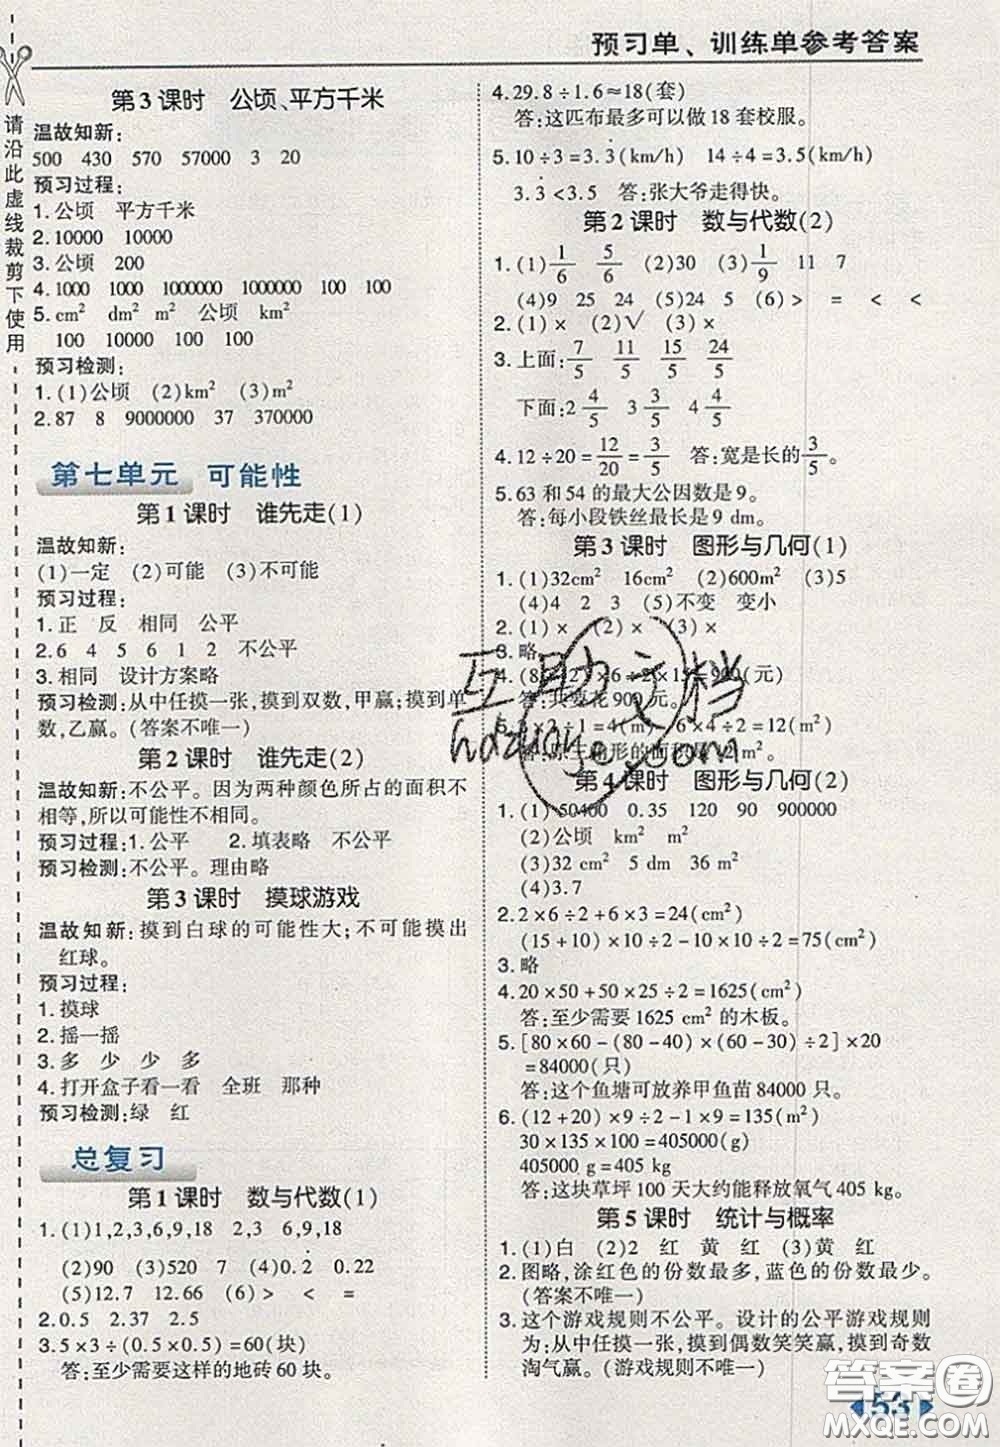 预习单、训练单参考答案
请沿此虚线裁剪下使用
第3课时 公顷、平方千米
温故知新：
500 430 570 57000 3 20
预习过程：
1.公顷 平方千米
2.10000 10000
3.公顷 200
4.1000 1000 1000000 1000000 100 100
5.cm² dm² m² 公顷 km²
100 10000 100 100
预习检测：
1.(1)公顷 (2)km² (3)m²
2.87 8 9000000 37 370000
第七单元 可能性
第1课时 谁先走(1)
温故知新：
(1)一定 (2)可能 (3)不可能
预习过程：
1.正 反 相同 公平
2.6 4 5 6 1 2 不公平
3.相同 设计方案略
预习检测:从中任摸一张,摸到双数,甲赢;摸到单
数,乙赢。(答案不唯一)
第2课时 谁先走(2)
温故知新:不公平。因为两种颜色所占的面积不
相等,所以可能性不相同。
预习过程:1.公平 2.填表略 不公平
预习检测:不公平。理由略
第3课时 摸球游戏
温故知新:摸到白球的可能性大;不可能摸出
红球。
预习过程：
1.摸球
2.摇一摇
3.多 少 少 多
4.打开盒子看一看 全班 那种
预习检测:绿 红
总复习
第1课时 数与代数(1)
1.(1)1,2,3,6,9,18 2,3 6,9,18
(2)90 (3)520 7 (4)0.2̇ 0.22
(5)12.7 12.66 (6)> < =
2.0.5 2.37 2.5
3.5×3÷(0.5×0.5)=60(块)
答:至少需要这样的地砖60块。
4.29.8÷1.6≈18(套)
答:这匹布最多可以做18套校服。
5.10÷3=3.3̇(km/h) 14÷4=3.5(km/h)
3.3̇<3.5 答:张大爷走得快。
第2课时 数与代数(2)
1.(1)1/6 5/6 (2)30 (3)1/9 11 7
(4)9 25 24 (5)24 5 (6)> = < <
2.(1)× (2)√ (3)×
3.上面:7/5 11/5 15/5 24/5
下面:2 4/5 3 3/5 4 4/5
4.12÷20=12/20=3/5 答:宽是长的3/5。
5.63和54的最大公因数是9。
答:每小段铁丝最长是9 dm。
第3课时 图形与几何(1)
1.(1)32cm² 16cm² (2)600m² (3)5
(4)4 2 3 (5)不变 变小
2.(1)× (2)× (3)×
3.略
4.(8+12)×6÷2×15=900(元)
答:共要花900元。
5. ×2÷1=4(m) 6×4÷2=12(m²)
答:原三角形的面积是12 m²。
第4课时 图形与几何(2)
1.(1)50400 0.35 120 90 900000
(2)公顷 km² m²
(3)32 cm² 5 dm 36 m²
(4)3.7
2.2×6÷2+6×3=24(cm²)
(15+10)×10÷2-10×10÷2=75(cm²)
3.略
4.20×50+50×25÷2=1625(cm²)
答:至少需要1625 cm²的木板。
5.[80×60-(80-40)×(60-30)÷2]×20
=84000(只)
答:这个鱼塘可放养甲鱼苗84000只。
6.(12+20)×9÷2-9×1=135(m²)
30×135×100=405000(g)
405000 g=405 kg
答:这块草坪100天大约能释放氧气405 kg。
第5课时 统计与概率
1.(1)白 (2)2 红 黄 红 (3)黄 红
2.图略,涂红色的份数最多,蓝色的份数最少。
(答案不唯一)
3.这个游戏规则不公平。设计的公平游戏规则
为:从中任摸一张,摸到偶数笑笑赢,摸到奇数
淘气赢。(游戏规则不唯一)
互助文档
hdzuoye.com
53
答案圈
MXQE.COM